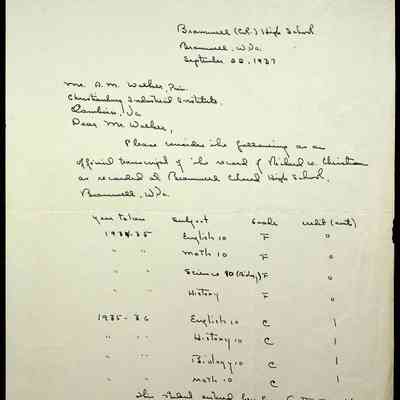 Bramwell (Col.) High School
Bramwell, W.Va.
September 22, 1937
Mr. A. M. Walker, Prin.
Christiansburg Industrial Institute,
Cambria, Va
Dear Mr. Walker,
Please consider the following as an
official transcript of the record of Richard W. Christian
as recorded at Bramwell Colored High School,
Bramwell, W.Va.
Year taken Subject Grade credit (units)
1934-35 English 10 F 0
" " Math 10 F 0
" " Science 10 F 0
" " History F 0
1935-36 English 10 C 1
" " History 10 C 1
" " Biology 10 C 1
" " Math 10 C 1
This student entered